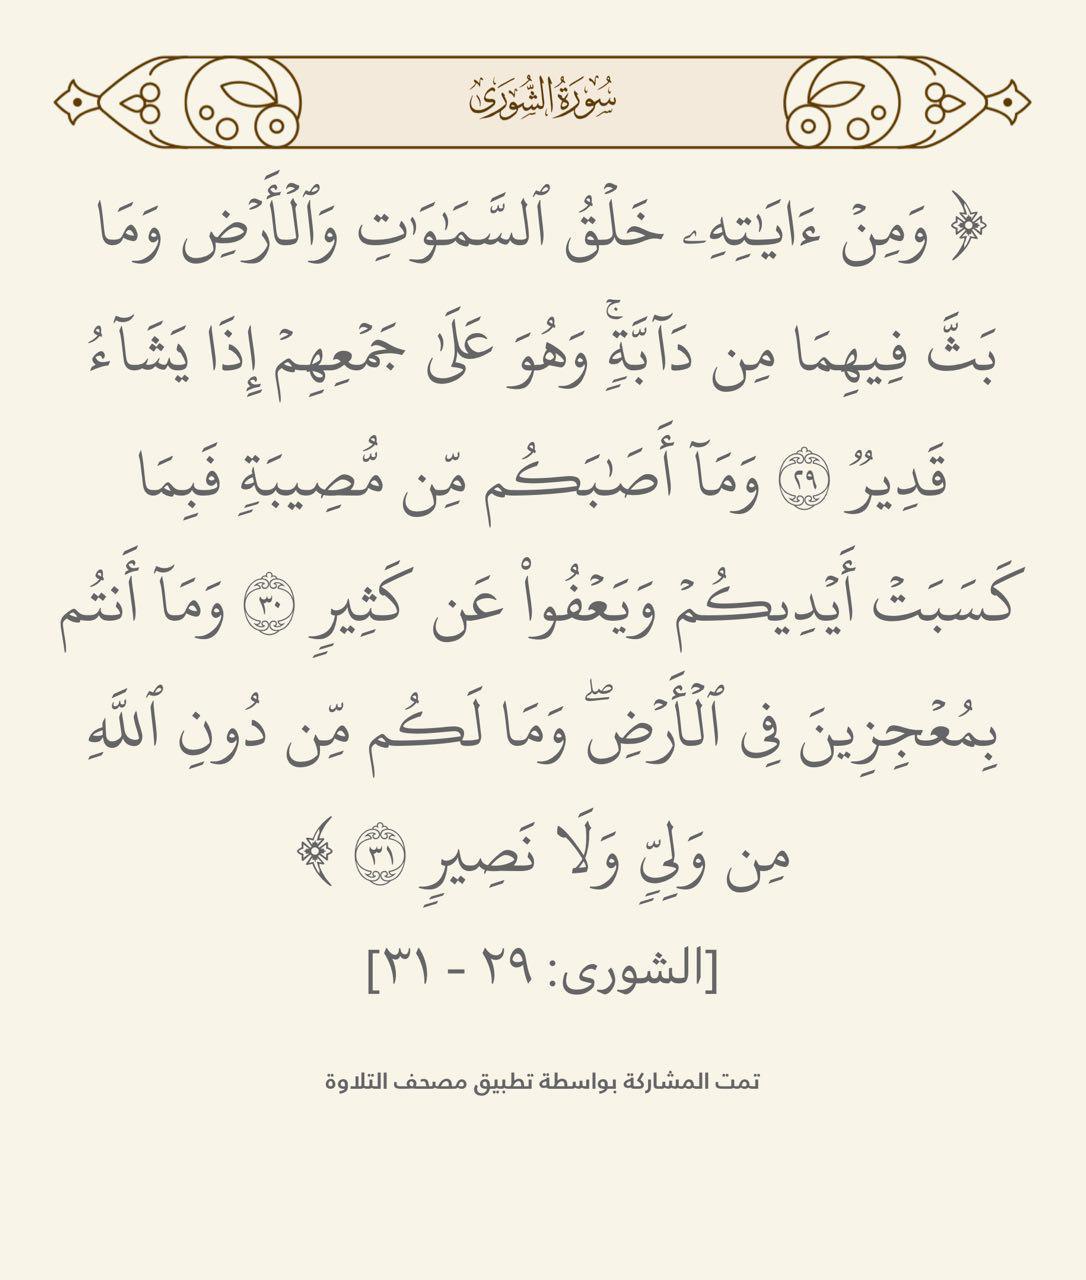 سُورَةُ الشُّورَىٰ
﴿ وَمِنۡ ءَايَٰتِهِۦ خَلۡقُ ٱلسَّمَٰوَٰتِ وَٱلۡأَرۡضِ وَمَا
بَثَّ فِيهِمَا مِن دَآبَّةٖۚ وَهُوَ عَلَىٰ جَمۡعِهِمۡ إِذَا يَشَآءُ
قَدِيرٞ ٢٩ وَمَآ أَصَٰبَكُم مِّن مُّصِيبَةٖ فَبِمَا
كَسَبَتۡ أَيۡدِيكُمۡ وَيَعۡفُواْ عَن كَثِيرٖ ٣٠ وَمَآ أَنتُم
بِمُعۡجِزِينَ فِي ٱلۡأَرۡضِۖ وَمَا لَكُم مِّن دُونِ ٱللَّهِ
مِن وَلِيّٖ وَلَا نَصِيرٖ ٣١ ﴾
[الشورى: ٢٩ - ٣١]
تمت المشاركة بواسطة تطبيق مصحف التلاوة